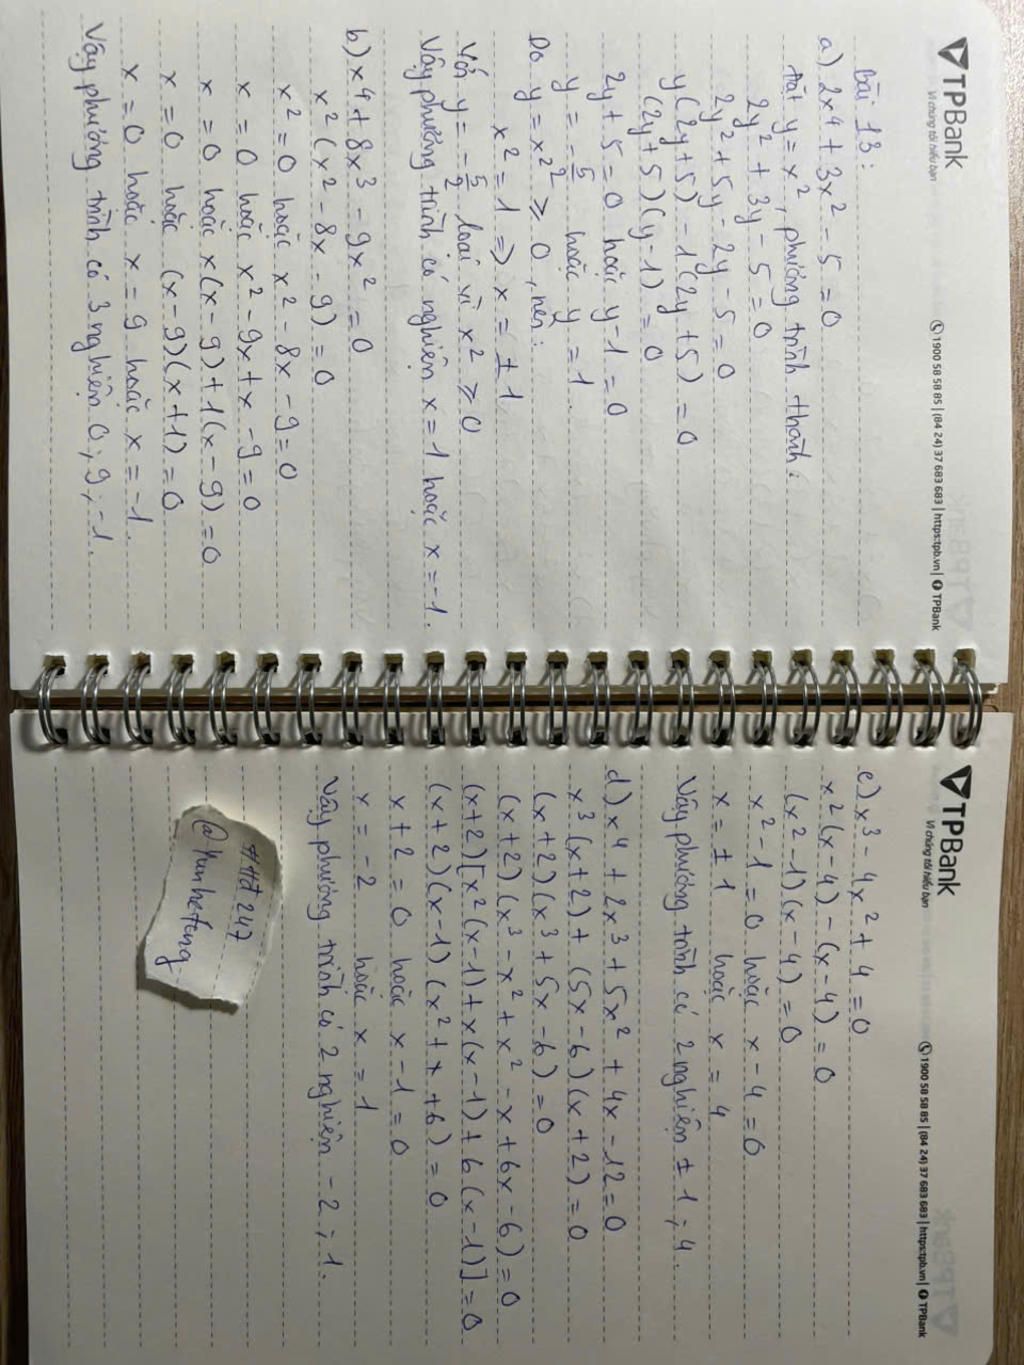 TPBank
Vì chúng tôi hiểu bạn
1900 58 58 85 | (84 24) 37 683 683 | https:tpb.vn | TPBank
Bài 13:
a) 2x⁴ + 3x² - 5 = 0
Đặt y = x², phương trình thành:
2y² + 3y - 5 = 0
2y² + 5y - 2y - 5 = 0
y(2y + 5) - 1(2y + 5) = 0
(2y + 5)(y - 1) = 0
2y + 5 = 0 hoặc y - 1 = 0
y = -5/2 hoặc y = 1.
Do y = x² ≥ 0, nên:
x² = 1 => x = ± 1
Với y = -5/2 loại vì x² ≥ 0
Vậy phương trình có nghiệm x = 1 hoặc x = -1.
b) x⁴ + 8x³ - 9x² = 0
x² (x² - 8x - 9) = 0
x² = 0 hoặc x² - 8x - 9 = 0
x = 0 hoặc x² - 9x + x - 9 = 0
x = 0 hoặc x(x - 9) + 1(x - 9) = 0
x = 0 hoặc (x - 9)(x + 1) = 0
x = 0 hoặc x = 9 hoặc x = -1.
Vậy phương trình có 3 nghiệm 0; 9; -1.
TPBank
Vì chúng tôi hiểu bạn
1900 58 58 85 | (84 24) 37 683 683 | https:tpb.vn | TPBank
c) x³ - 4x² + 4 = 0
x² (x - 4) - (x - 4) = 0
(x² - 1)(x - 4) = 0
x² - 1 = 0 hoặc x - 4 = 0
x = ± 1 hoặc x = 4
Vậy phương trình có 2 nghiệm ± 1; 4.
d) x⁴ + 2x³ + 5x² + 4x - 12 = 0
x³ (x + 2) + (5x - 6)(x + 2) = 0
(x + 2)(x³ + 5x - 6) = 0
(x + 2)(x³ - x² + x² - x + 6x - 6) = 0
(x + 2)[x² (x - 1) + x(x - 1) + 6(x - 1)] = 0
(x + 2)(x - 1)(x² + x + 6) = 0
x + 2 = 0 hoặc x - 1 = 0
x = -2 hoặc x = 1
Vậy phương trình có 2 nghiệm -2; 1.
#Hđ247